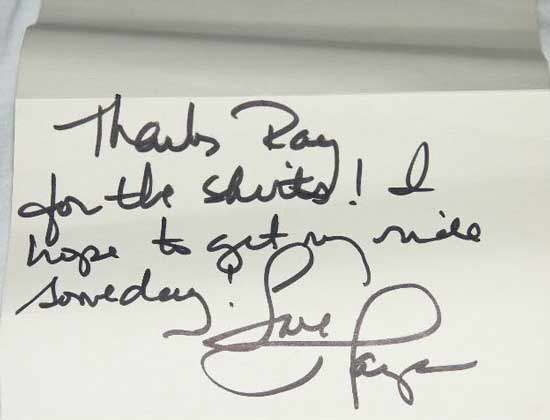 Thanks Ray
for the shirts! I
hope to get my ride
someday!
Love